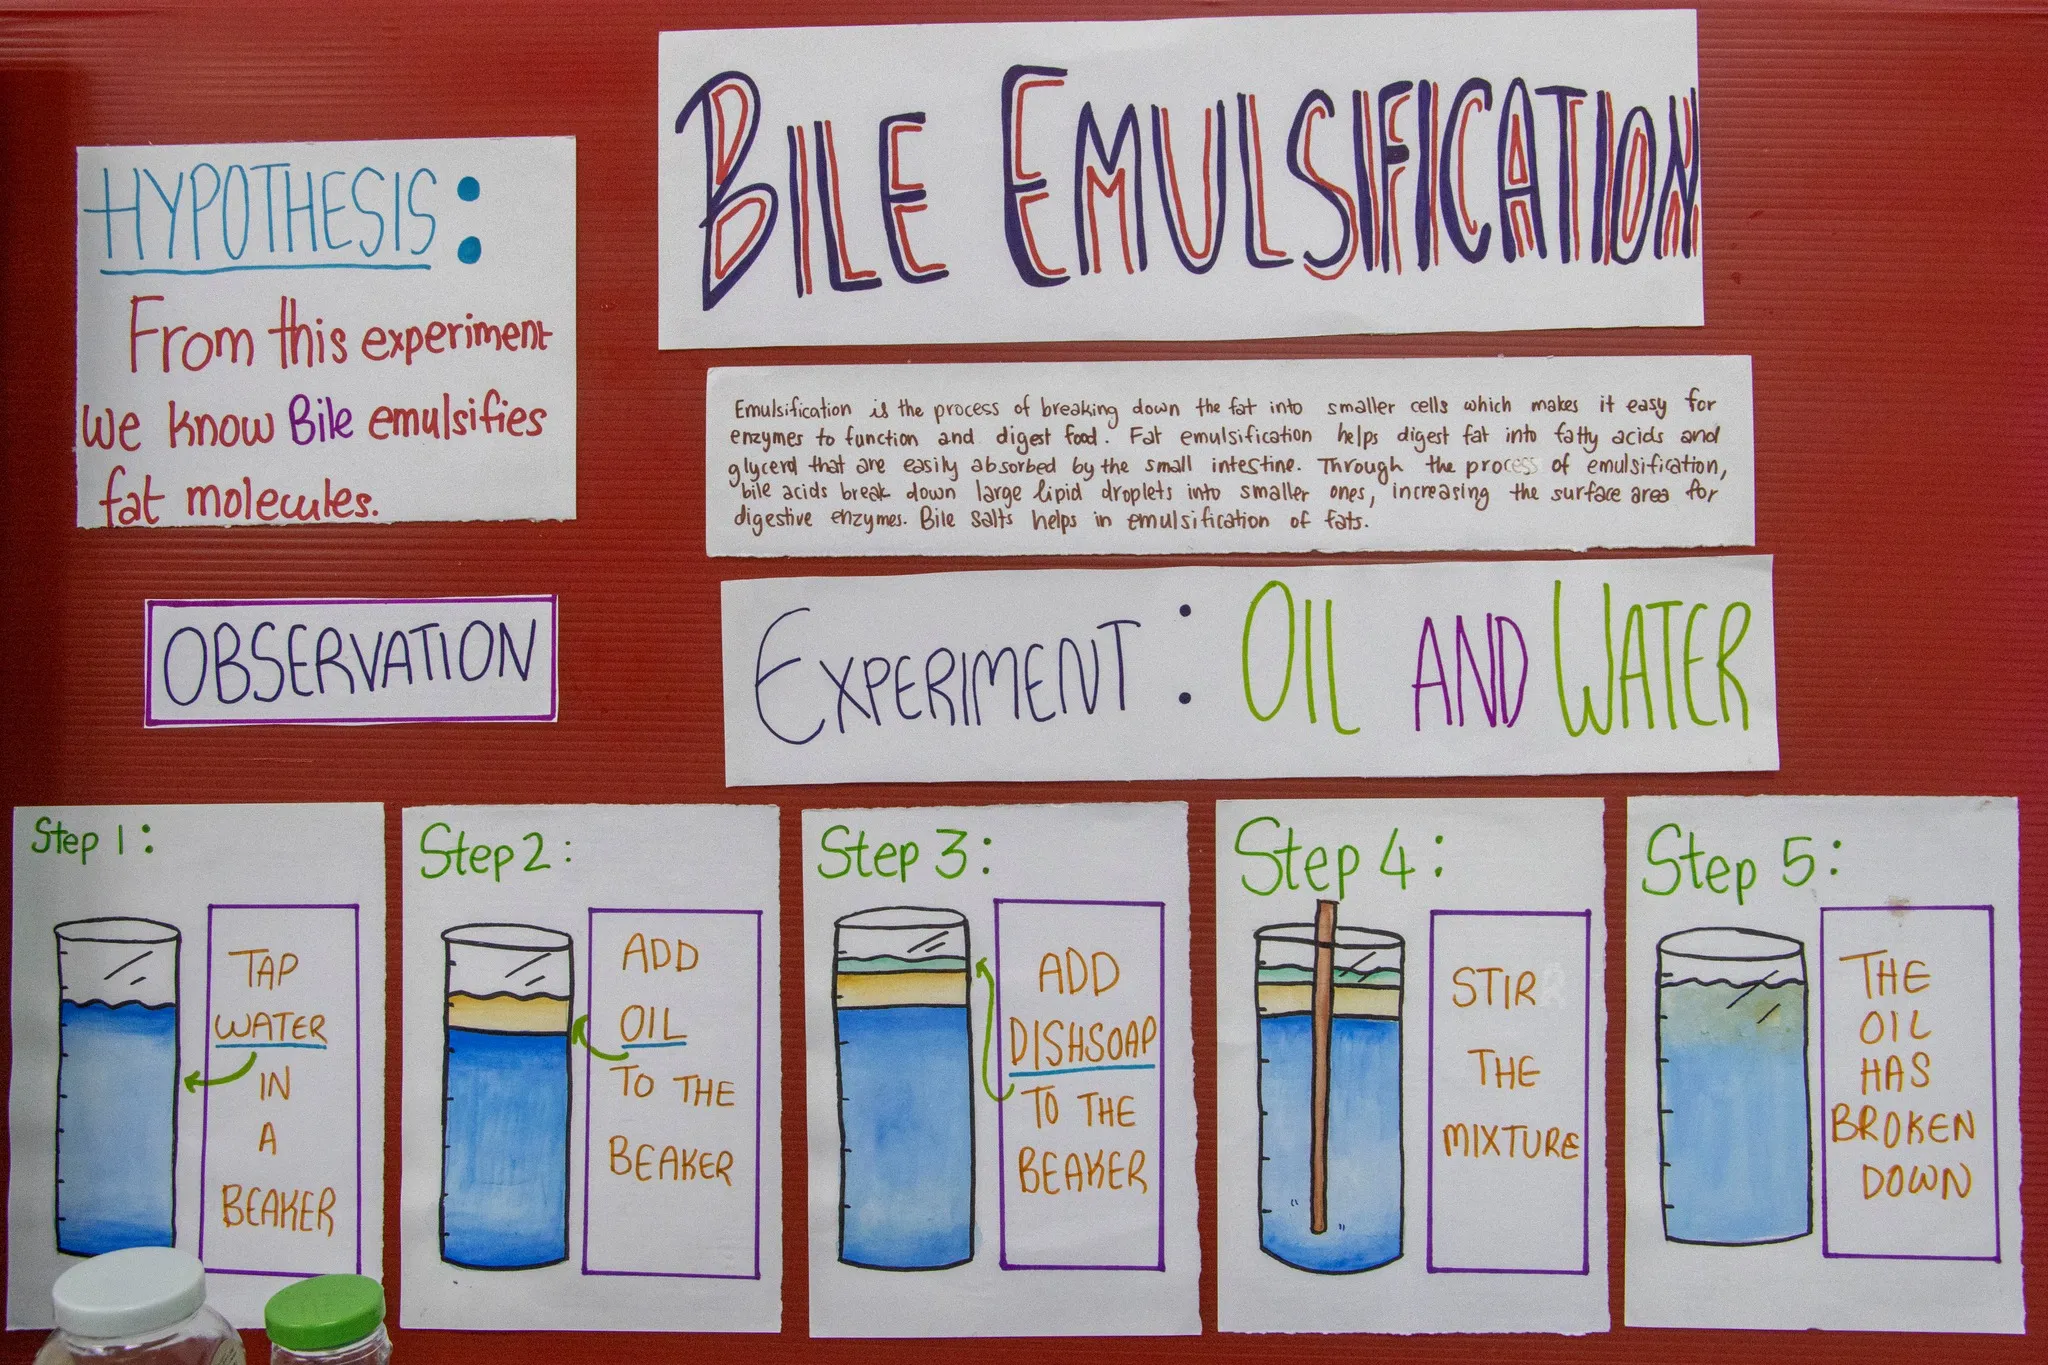 BILE EMULSIFICATION
HYPOTHESIS:
From this experiment
we know Bile emulsifies
fat molecules.
Emulsification is the process of breaking down the fat into smaller cells which makes it easy for
enzymes to function and digest food. Fat emulsification helps digest fat into fatty acids and
glycerol that are easily absorbed by the small intestine. Through the process of emulsification,
bile acids break down large lipid droplets into smaller ones, increasing the surface area for
digestive enzymes. Bile salts helps in emulsification of fats.
OBSERVATION
EXPERIMENT: OIL AND WATER
Step 1:
TAP
WATER
IN
A
BEAKER
Step 2:
ADD
OIL
TO THE
BEAKER
Step 3:
ADD
DISHSOAP
TO THE
BEAKER
Step 4:
STIR
THE
MIXTURE
Step 5:
THE
OIL
HAS
BROKEN
DOWN